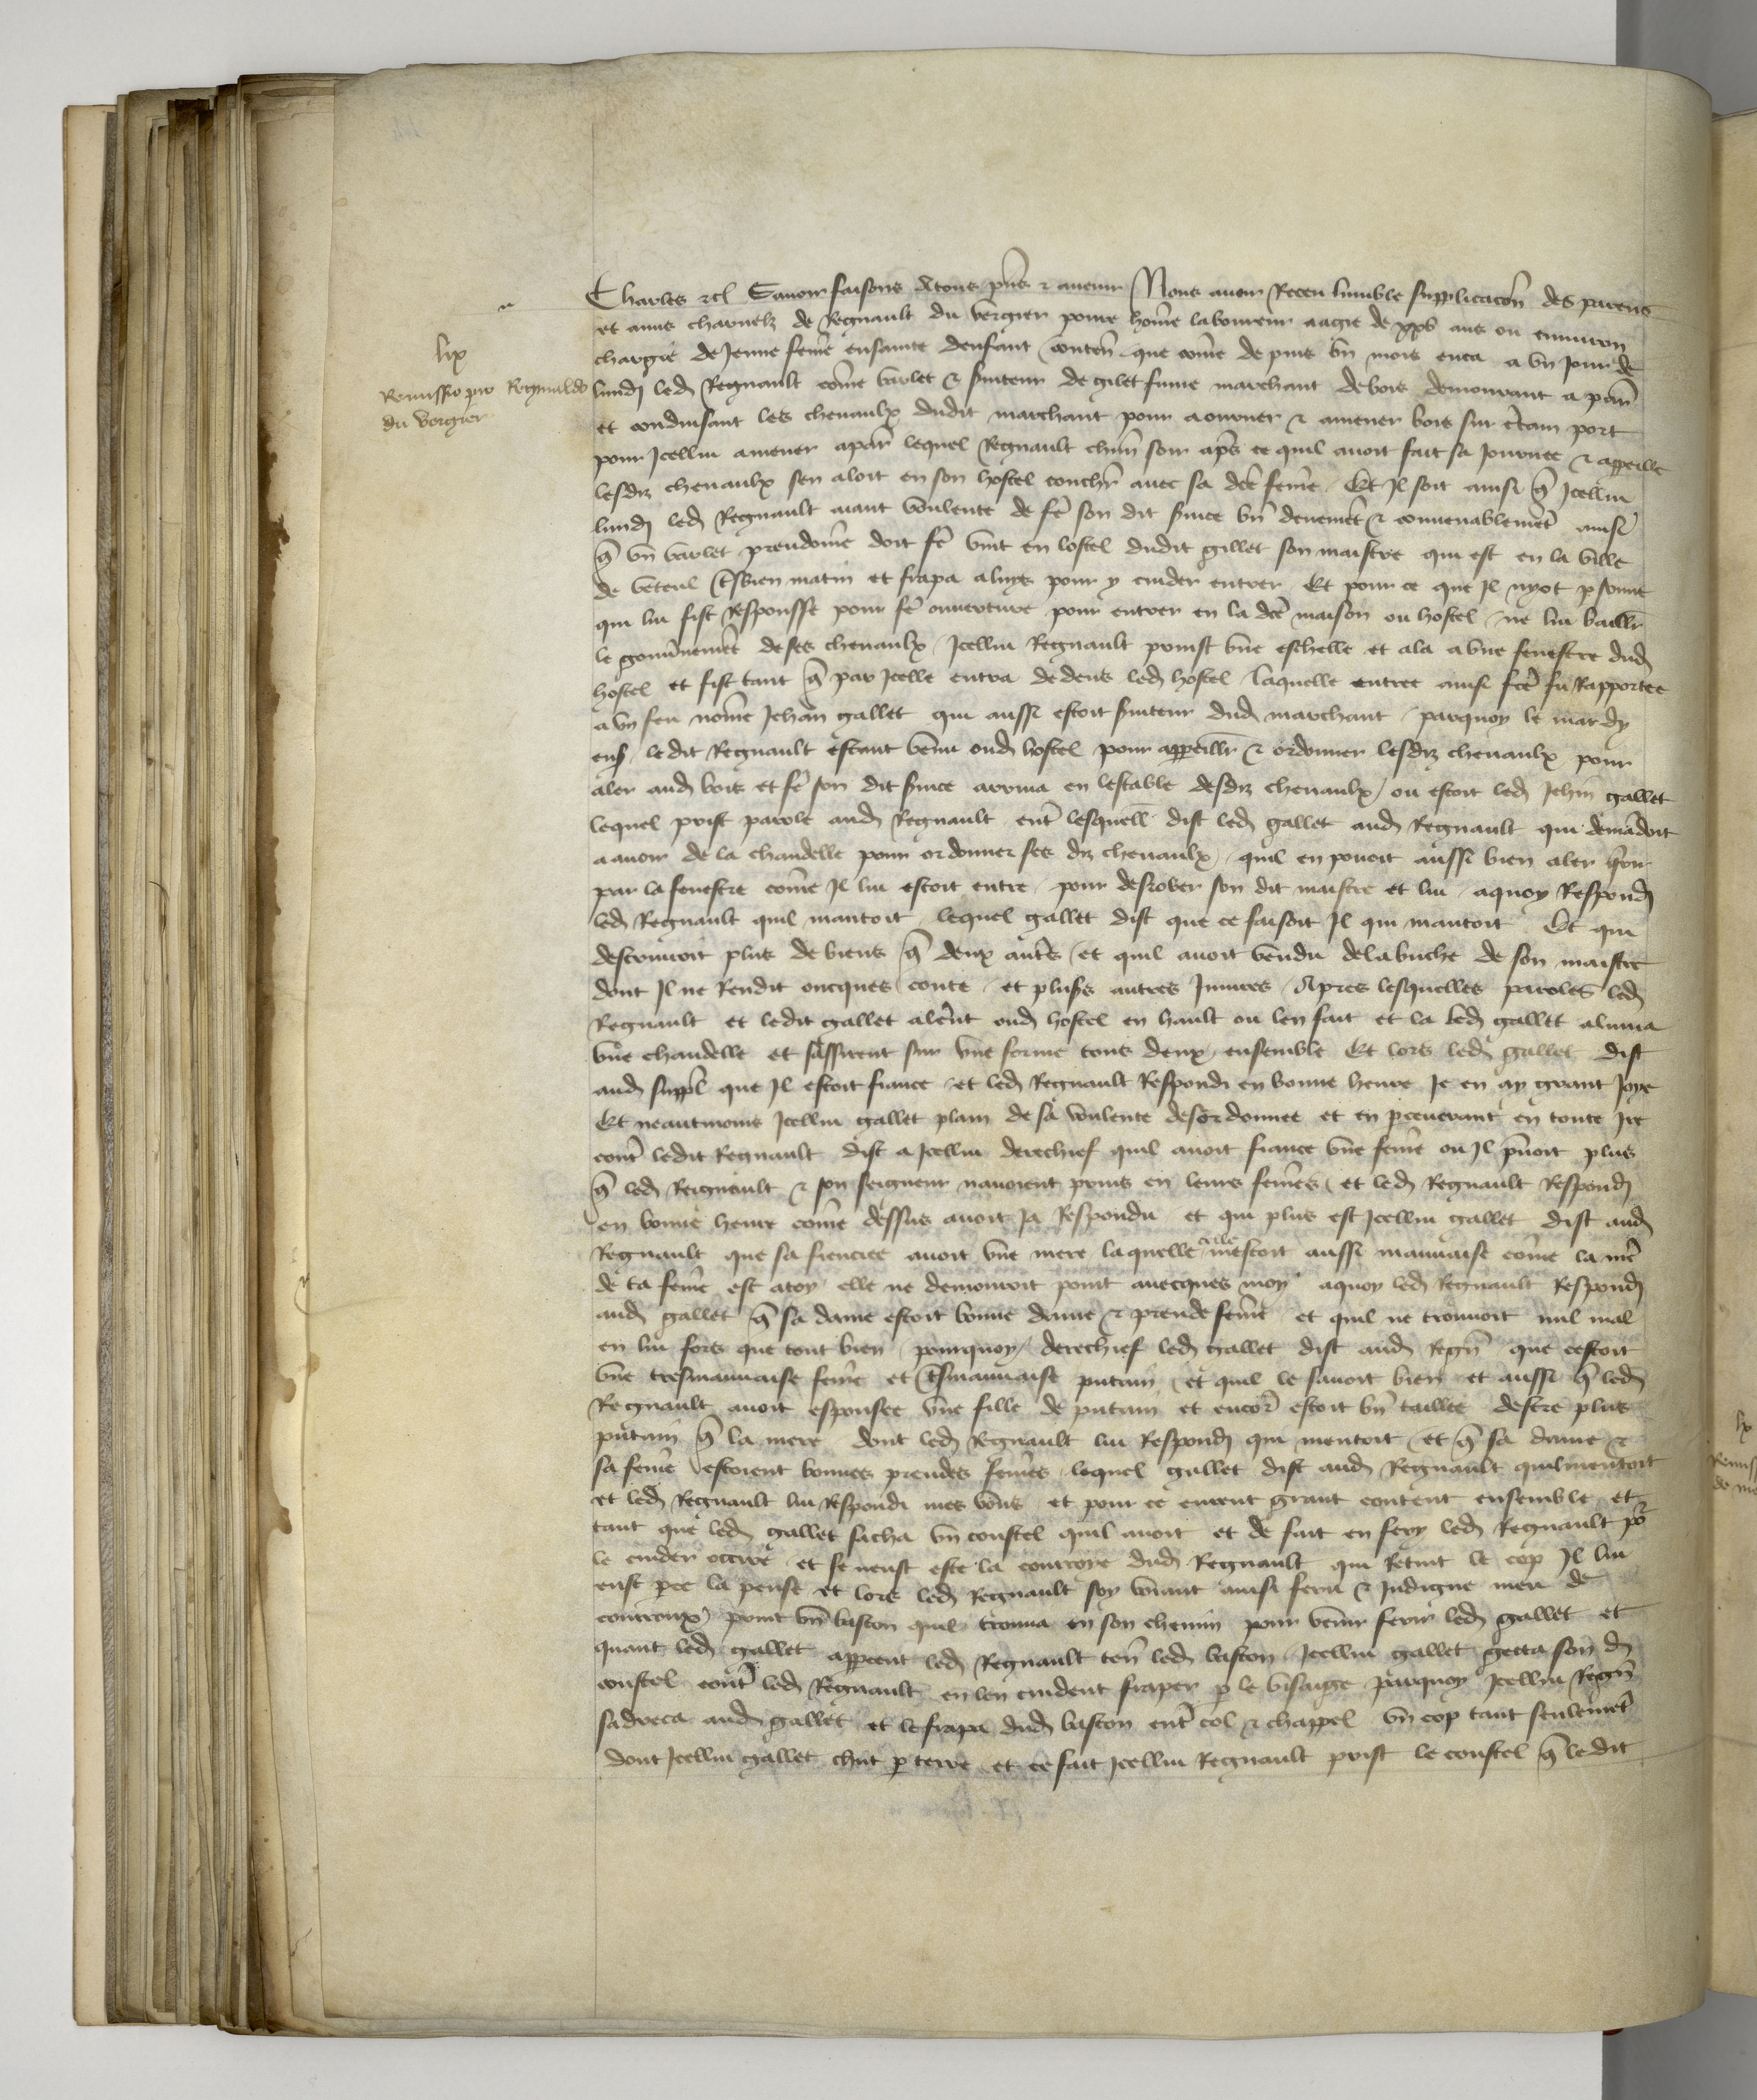 lix
Remissio pro Reginaldo
du vergier
Charles etc Savoir faisons a tous pñs & avenir Nous avoir Receu lumble supplicacõn des parens
et amis charnelz de Regnault du vergier povre hõme laboureur aagie de xxv ans ou environ
chargie de Jeune fem̃e ensainte denfant contenãt que cõme de puis vn mois enca a vn Jour de
lundj led Regnault cõme varlet & s̃uiteur de gilet fume marchant de bois demourant a
et conduisant les chevaulx dudit marchant pour aouvrer & amener bois sur c̃tain port
pour Jcellui amener apar̃ lequel Regnault chũn soir apr̃s ce quil avoit fait sa Journee & appeille
lesdiz chevaulx sen aloit en son hostel couchr̃ avec sa dc̃e fem̃e Et Jl soit ainsi q̃ Jcellui
lundj led Regnault aiant voulente de fẽ son dit s̃uice bñ deuemẽt & convenablemẽt ainsi
q̃ vn varlet preudom̃e doit fẽ vint en lostel dudit gillet son maistre qui est en la ville
de veteul t̃sbien matin et frapa a luys pour y cuider entrer Et pour ce que Jl nyot p̃sonne
qui lui fist Responsse pour fẽ ouverture pour entrer en la dc̃e maison ou hostel ne lui baillr̃
le gouũnemẽt de ses chevaulx Jcellui Regnault prinst vne eschelle et ala a vne fenestre dud
hostel et fist tant q̃ par Jcelle entra dedens led hostel laquelle entree ainsi fc̃e fu Rapportee
a vn feu nom̃e Jehan gallet qui aussi estoit s̃uiteur dud marchant parquoy le mardy
ens̃ ledit Regnault estant venu oud hostel pour appeillr̃ & ordonner lesdiz chevaulx pour
aler aud bois et fẽ son dit s̃uice arriva en lestable desdiz chevaulx ou estoit led Jehñ gallet
lequel prist parole aud Regnault ent̃ lesquell̃ dist led gallet aud Regnault qui demãdoit
a avoir de la chandelle pour ordonner ses diz chevaulx quil en povoit aussi bien aler
par la fenestre cõme Jl lui estoit entre pour desrober son dit maistre et lui aquoy Respondj
led Regnault quil mantoit lequel gallet dist que ce faisoit Jl qui mantoit Et qui
destruiroit plus de biens q̃ deux aut̃s et quil avoit vendu de la buche de son maistre
dont Jl ne Rendit oncques conte et plus̃s autres Iniures Apres lesquelles paroles led
Regnault et ledit gallet aler̃nt oud hostel en hault ou len fait et la led gallet aluma
vne chandelle et sassirent sur vne forme tous deux ensemble Et lors led gallet dist
aud suppl̃ que Jl estoit fiance et led Regnault Respondi en bonne heure Je en ay grant Joye
Et neantmoins Jcellui gallet plain de sa voulente desordonnee et en p̃cevrant en toute Ire
cont̃ ledit Regnault dist a Jcellui derechief quil avoit fiance vne fem̃e ou Jl p̃noit plus
q̃ led Regnault & son seigneur navoient prins en leurs fem̃es et led Regnault Respondj
en bonne heure cõme dessus avoit Ja Respondu et qui plus est Jcellui gallet dist aud
Regnault que sa fiencee avoit vne mere laquelle celle mestoit aussi mauvaise cõme la mẽ
de ta fem̃e est atoy elle ne demourroit point avecques moy aquoy led Regnault Respondj
aud gallet q̃ sa dame estoit bonne dame & preude fem̃e et quil ne trouvoit nul mal
en lui fors que tout bien pourquoy derechief led gallet dist aud Regñ que cestoit
vne tresmauvaise fem̃e et t̃smauvaise putain et quil le savoit bien et aussi q̃ led
Regnault avoit espousee vne fille de putain et encor̃ estoit bñ taillee destre plus
putain q̃ la mere dont led Regnault lui Respondj qui mentoit et q̃ sa dame &
sa fem̃e estoient bonnes preudes fem̃es lequel gallet dist aud Regnault quil mentoit
et led Regnault lui Respondi mes vous et pour ce eurent grant content ensemble et
tant que led gallet sacha vn coustel quil avoit et de fait en fery led Regnault por
le cuider occire et se neust este la courroye dud Regnault qui Retint le cop Jl lui
eust p̃ce la pense et lors led Regnault soy voiant ainsi feru & Indigne meu de
courroux print vn baston quil trouva en son chemin pour venir ferir led gallet et
quant led gallet apperceut led Regnault teñ led baston Jcellui gallet getta son dit
coustel cont̃ led Regnault en len cuident fraper p̃ le visaige parquoy Jcellui Regñ
sadreca aud gallet et le frapa dud baston ent̃ col & chappel vn cop tant seulemẽt
dont Jcellui gallet chut p̃ terre et ce fait Jcellui Regnault prist le coustel q̃ ledit
lx